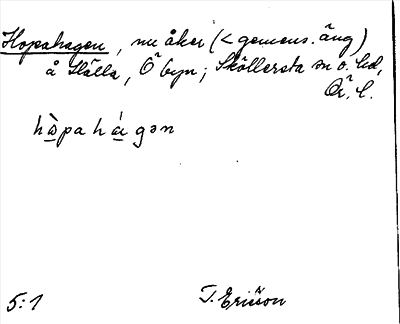 Hopahagen, nu åker (< gemens. äng)
å Hälla, Ö byn; Sköllersta sn o. hd,
Ör. l.
hòpa há gən
5:1
T. Ericsson